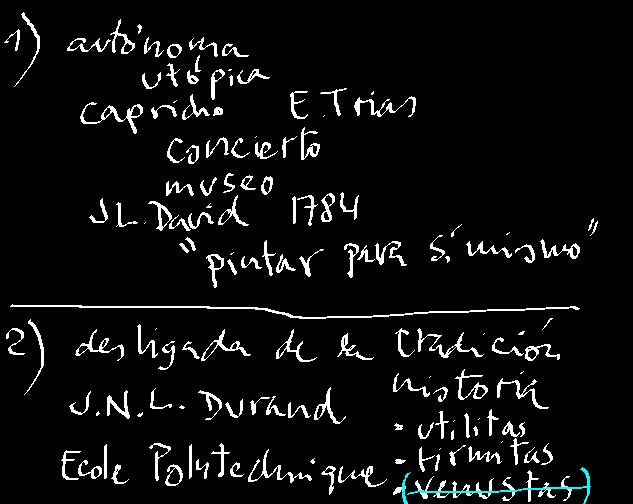 1) autónoma
utópica
capricho E. Trias
concierto
museo
J L. David 1784
"pintar para sí mismo"
2) desligada de la tradición
historia
J.N.L. Durand
- utilitas
- firmitas
Ecole Polytechnique
- (venustas)